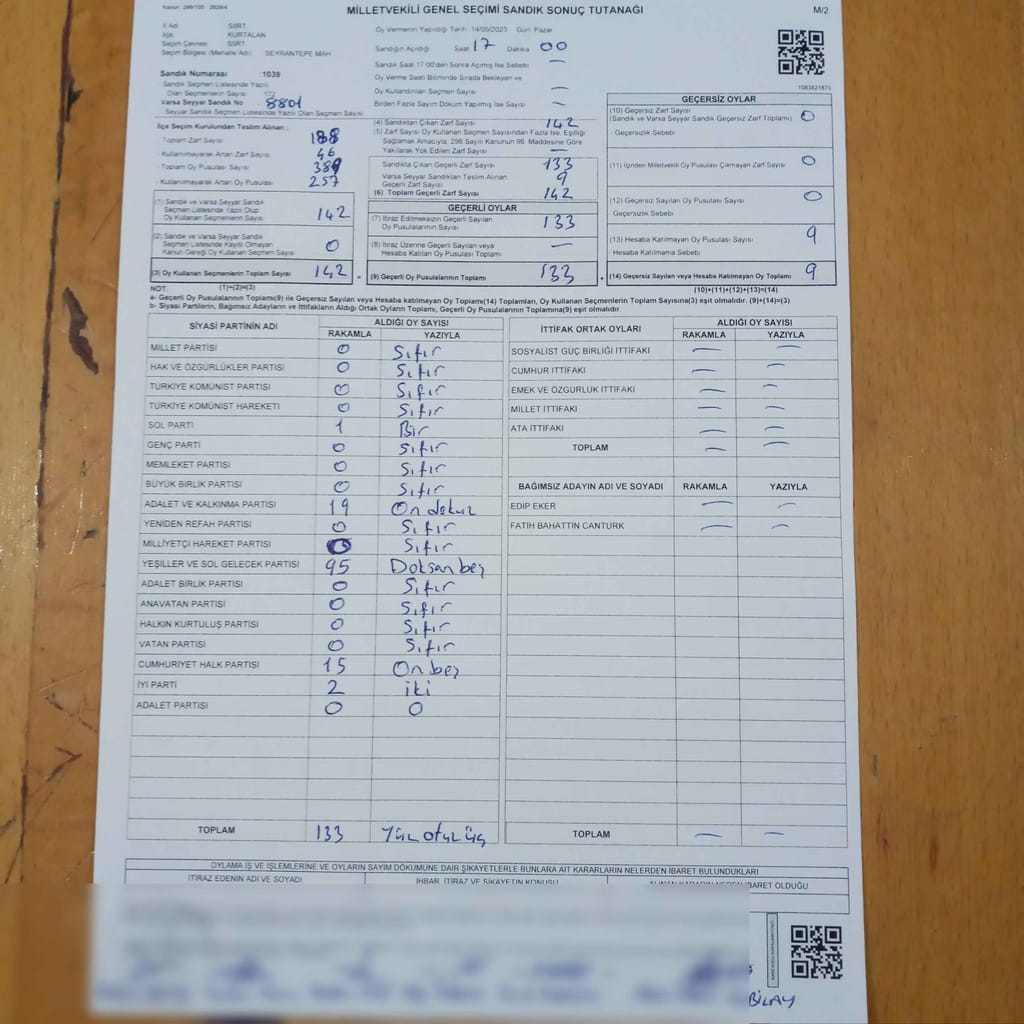 MİLLETVEKİLİ GENEL SEÇİMİ SANDIK SONUÇ TUTANAĞI
M/2
İl Adı SİİRT
İlçe KURTALAN
Seçim Çevresi SİİRT
Seçim Bölgesi (Mahalle Adı) SEYRANTEPE MAH
Sandık Numarası :1039
Sandık Seçmen Listesinde Yazılı
Olan Seçmenlerin Sayısı 172
Varsa Seyyar Sandık No 8801
Seyyar Sandık Seçmen Listesinde Yazılı Olan Seçmen Sayısı
İlçe Seçim Kurulundan Teslim Alınan :
Toplam Zarf Sayısı 188
Kullanılmayarak Artan Zarf Sayısı 46
Toplam Oy Pusulası Sayısı
Kullanılmayarak Artan Oy Pusulası 257
(1) Sandık ve Varsa Seyyar Sandık
Seçmen Listesinde Yazılı Olup
Oy Kullanan Seçmenlerin Sayısı 142
(2) Sandık ve Varsa Seyyar Sandık
Seçmen Listesinde Kayıtlı Olmayan
Kanun Gereği Oy Kullanan Seçmen Sayısı 0
(3) Oy Kullanan Seçmenlerin Toplam Sayısı 142 =
Oy Vermenin Yapıldığı Tarih 14/05/2023 Gün Pazar
Sandığın Açıldığı Saat 17 Dakika 00
Sandık Saat 17:00'den Sonra Açılmış İse Sebebi —
Oy Verme Saati Bitiminde Sırada Bekleyen ve
Oy Kullandırılan Seçmen Sayısı —
Birden Fazla Sayım Döküm Yapılmış İse Sayısı —
(4) Sandıktan Çıkan Zarf Sayısı 142
(5) Zarf Sayısı Oy Kullanan Seçmen Sayısından Fazla İse, Eşitliği
Sağlamak Amacıyla, 298 Sayılı Kanunun 98. Maddesine Göre
Yakılarak Yok Edilen Zarf Sayısı —
Sandıkta Çıkan Geçerli Zarf Sayısı 133
Varsa Seyyar Sandıktan Teslim Alınan
Geçerli Zarf Sayısı 9
(6) Toplam Geçerli Zarf Sayısı 142
GEÇERLİ OYLAR
(7) İtiraz Edilmeksizin Geçerli Sayılan
Oy Pusulalarının Sayısı 133
(8) İtiraz Üzerine Geçerli Sayılan veya
Hesaba Katılan Oy Pusulası Toplamı —
(9) Geçerli Oy Pusulalarının Toplamı 133 +
1083621873
GEÇERSİZ OYLAR
(10) Geçersiz Zarf Sayısı
(Sandık ve Varsa Seyyar Sandık Geçersiz Zarf Toplamı) 0
- Geçersizlik Sebebi
(11) İçinden Milletvekili Oy Pusulası Çıkmayan Zarf Sayısı 0
(12) Geçersiz Sayılan Oy Pusulası Sayısı 0
Geçersizlik Sebebi
(13) Hesaba Katılmayan Oy Pusulası Sayısı 9
- Hesaba Katılmama Sebebi
(14) Geçersiz Sayılan veya Hesaba Katılmayan Oy Toplamı 9
NOT: (1)+(2)=(3) (10)+(11)+(12)+(13)=(14)
a- Geçerli Oy Pusulalarının Toplamı(9) ile Geçersiz Sayılan veya Hesaba katılmayan Oy Toplamı(14) Toplamları, Oy Kullanan Seçmenlerin Toplam Sayısına(3) eşit olmalıdır. (9)+(14)=(3)
b- Siyasi Partilerin, Bağımsız Adayların ve İttifakların Aldığı Ortak Oyların Toplamı, Geçerli Oy Pusulalarının Toplamına(9) eşit olmalıdır.
SİYASİ PARTİNİN ADI ALDIĞI OY SAYISI
RAKAMLA YAZIYLA
MİLLET PARTİSİ 0 Sıfır
HAK VE ÖZGÜRLÜKLER PARTİSİ 0 Sıfır
TÜRKİYE KOMÜNİST PARTİSİ 0 Sıfır
TÜRKİYE KOMÜNİST HAREKETİ 0 Sıfır
SOL PARTİ 1 Bir
GENÇ PARTİ 0 Sıfır
MEMLEKET PARTİSİ 0 Sıfır
BÜYÜK BİRLİK PARTİSİ 0 Sıfır
ADALET VE KALKINMA PARTİSİ 19 On dokuz
YENİDEN REFAH PARTİSİ 0 Sıfır
MİLLİYETÇİ HAREKET PARTİSİ 0 Sıfır
YEŞİLLER VE SOL GELECEK PARTİSİ 95 Doksan beş
ADALET BİRLİK PARTİSİ 0 Sıfır
ANAVATAN PARTİSİ 0 Sıfır
HALKIN KURTULUŞ PARTİSİ 0 Sıfır
VATAN PARTİSİ 0 Sıfır
CUMHURİYET HALK PARTİSİ 15 On beş
İYİ PARTİ 2 iki
ADALET PARTİSİ 0 0
TOPLAM 133 Yüz otuz üç
İTTİFAK ORTAK OYLARI ALDIĞI OY SAYISI
RAKAMLA YAZIYLA
SOSYALİST GÜÇ BİRLİĞİ İTTİFAKI — —
CUMHUR İTTİFAKI — —
EMEK VE ÖZGÜRLÜK İTTİFAKI — —
MİLLET İTTİFAKI — —
ATA İTTİFAKI — —
TOPLAM — —
BAĞIMSIZ ADAYIN ADI VE SOYADI RAKAMLA YAZIYLA
EDİP EKER — —
FATİH BAHATTİN CANTÜRK — —
TOPLAM — —
OYLAMA İŞ VE İŞLEMLERİNE VE OYLARIN SAYIM DÖKÜMÜNE DAİR ŞİKAYETLERLE BUNLARA AİT KARARLARIN NELERDEN İBARET BULUNDUKLARI
İTİRAZ EDENİN ADI VE SOYADI İHBAR, İTİRAZ VE ŞİKAYETİN KONUSU ALINAN KARARIN NEDEN İBARET OLDUĞU
BİLAY